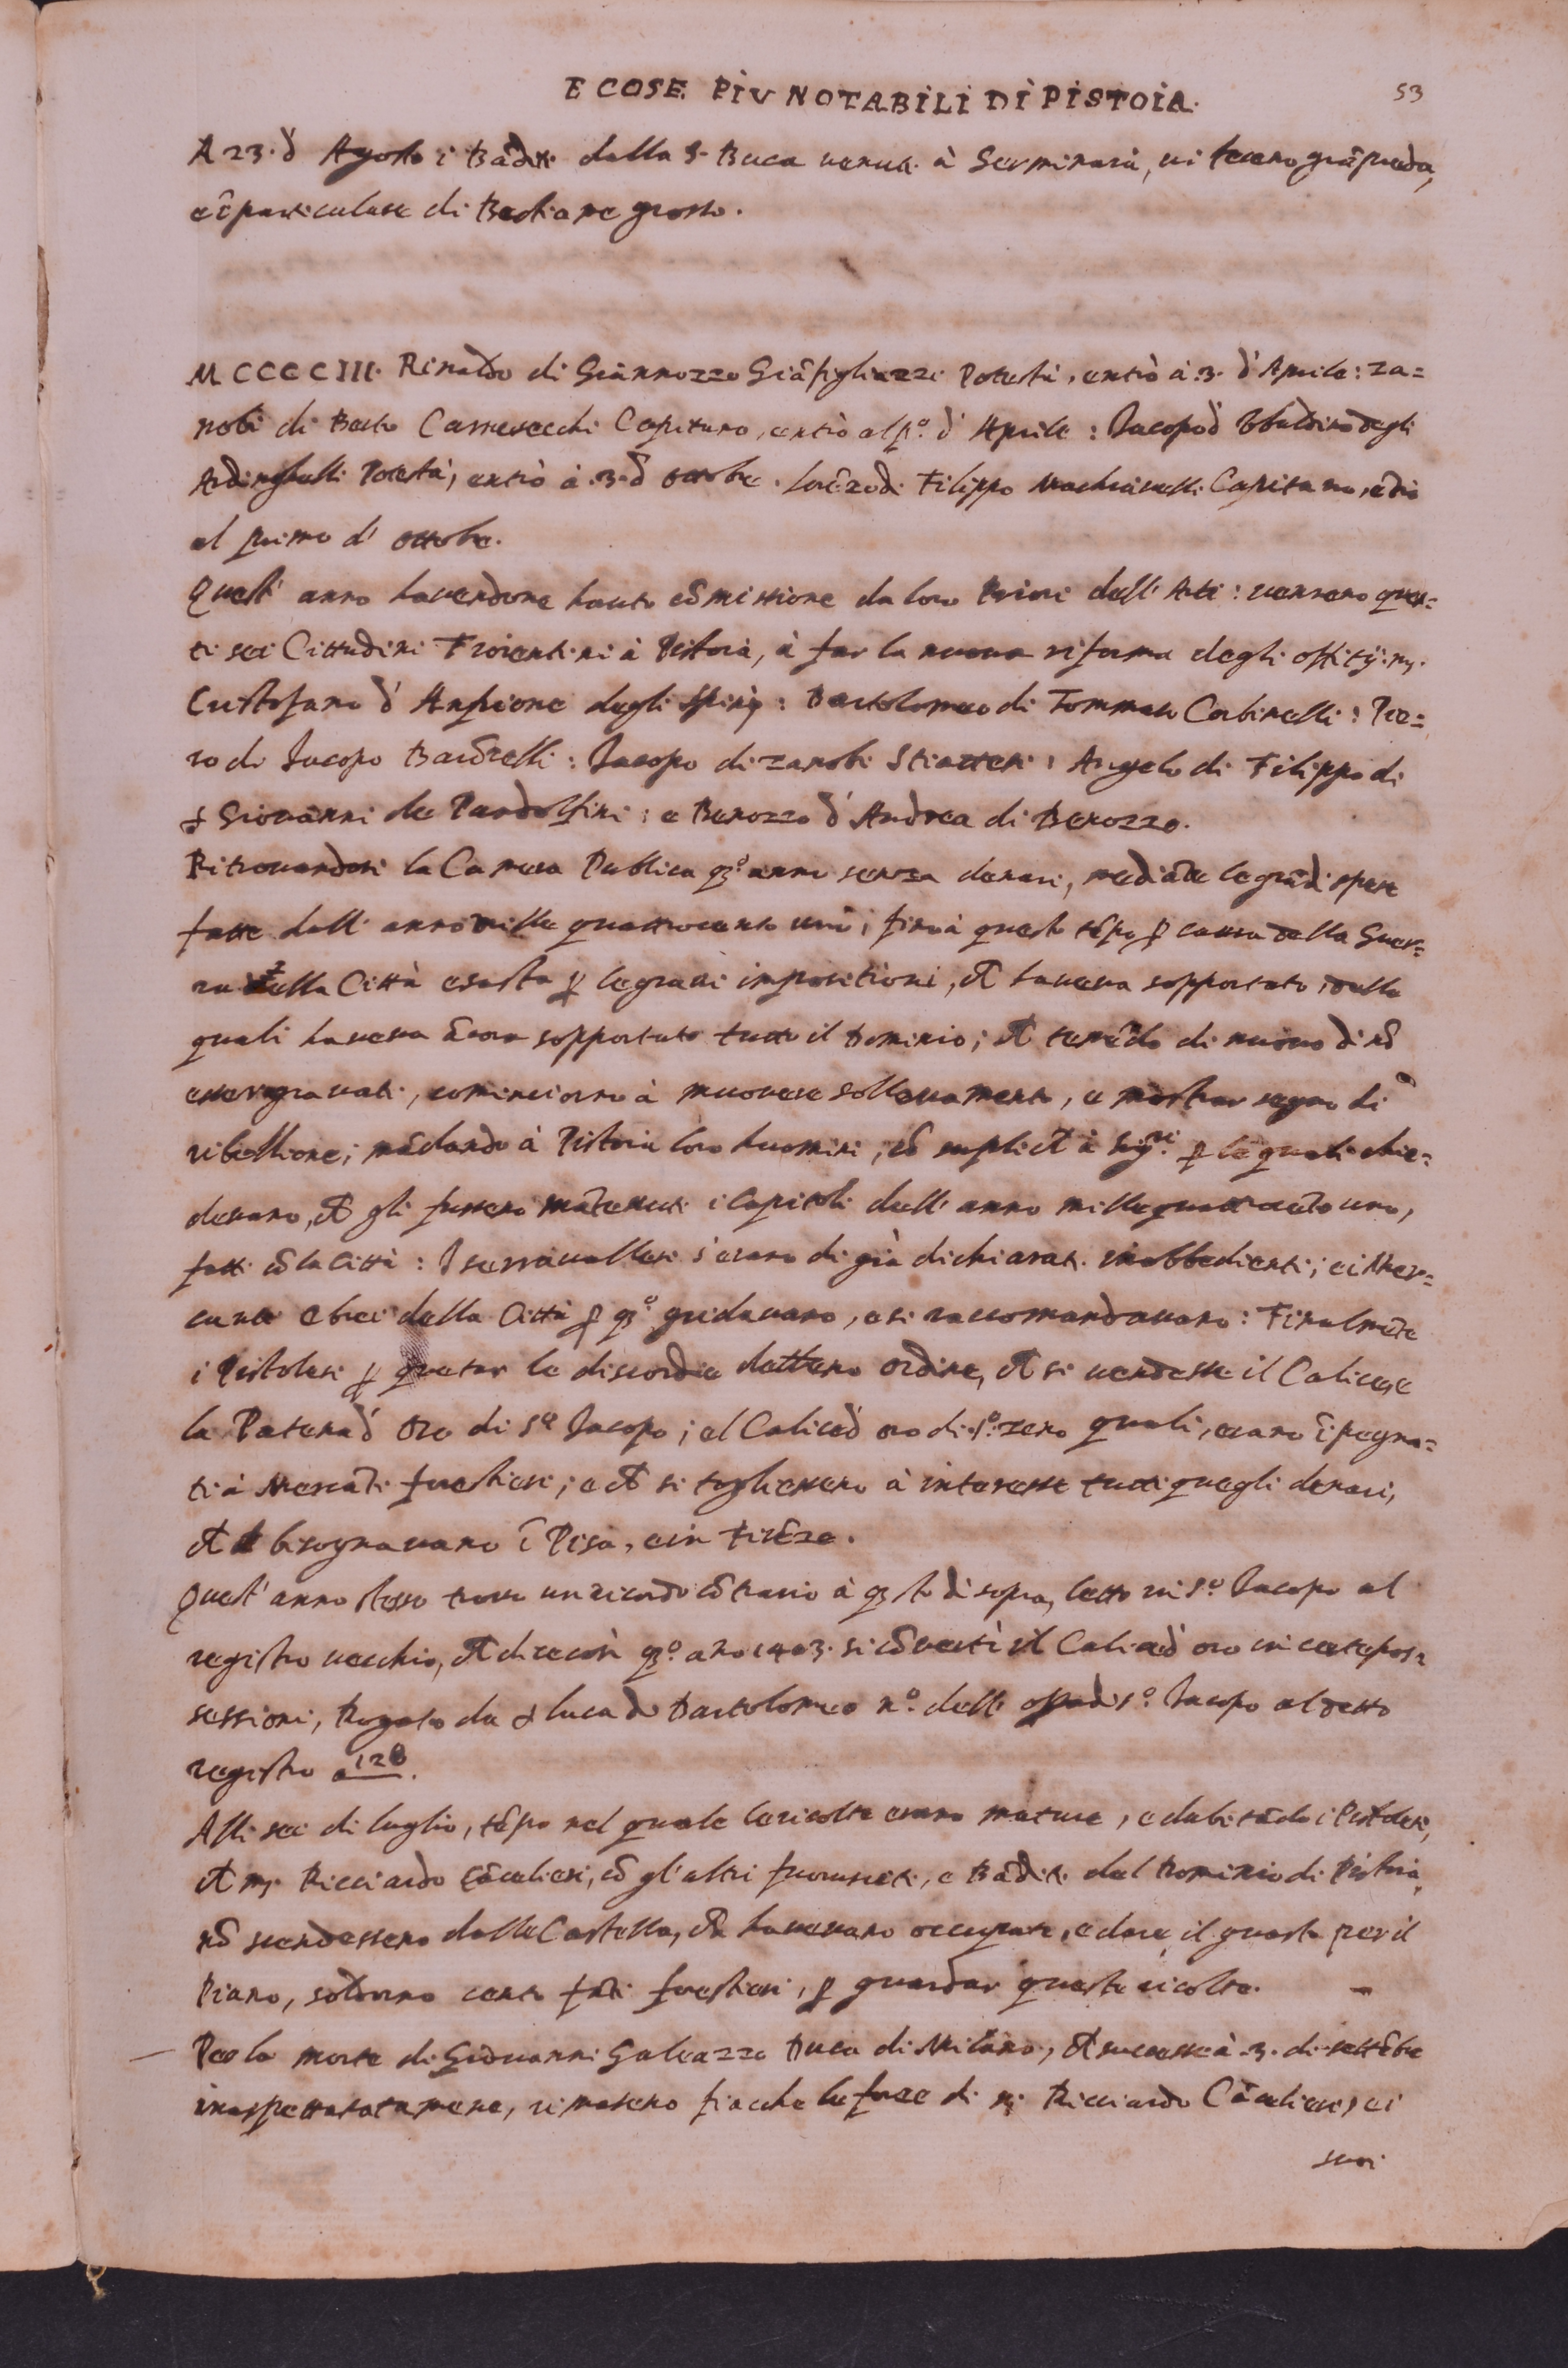 E COSE PIV NOTABILI DI PISTOIA. 53
A 23. d' Agosto i Bãditi della S. Buca venuti à Serminaià, vi fecero grã preda,
e ĩ particulare di Bestiame grosso.
MCCCCIII. Rinaldo di Giannozzo Giãfigliazzi Potestà, entrò à .3. d'Aprile: Za=
nobi di Berto Carnesecchi Capitano, entrò al pº. d' Aprile: Jacopo d' Ubaldino degli
Ardinghelli Potestà, entrò à .3. d' ottobre. Lorẽzo di Filippo Machiavelli Capitano, ẽtrò
al primo d' ottobre.
Quest' anno havendone hauto cõmissione da loro Priori dell' Arti: vennero ques=
ti sei Cittadini Fiorentini à Pistoia, à far la nuova riforma degli offitij: mʒ.
Cristofano d' Anfrione degli Spini: Bartolomeo di Tommaso Corbinelli: Pie=
ro di Jacopo Barõcelli: Jacopo di Zanobi Sciatteri: Angelo di Filippo di
ſ Giovanni de Pandolfini: e Benozzo d' Andrea di Benozzo.
Ritrovandosi la Camera Publica qʒº anno senza denari, mediãte le grãdi spese
fatte dall' anno mille quattrocento uno, fino à questo tẽpo ꝑ causa della Guer=
ra della Città esasta ꝑ le gravi impositioni, cħ haveva sopportato, dalle
quali haveva ãcora sopportato tutto il Dominio; cħ temẽdo di nuovo di nõ
esser gravati, cominciorno à muovere sollevamento, e mostrar segno di
ribellione; mãdando à Pistoia loro huomini, cõ suplicħ à Sigʳⁱ. ꝑ le quali chie=
devano, cħ gli fussero mãtenuti i Capitoli dell' anno mille quattrocẽto uno,
fatti cõ la Città: I serravallesi s'erano di già dichiarati inobbedienti; e i Mer=
canti e bici della Città ꝑ qʒº gridavano, e si raccomandavano: Finalmẽte
i Pistolesi ꝑ quetar le discordie dettero ordine, cħ si vendesse il Calice, e
la Patena d' Oro di Sº Jacopo; el Calice d' oro di Sº. Zeno quali, erano ĩpegna=
ti à Mercãti forestieri; e cħ si togliessero à interesse tutti quegli denari,
cħ bisognavano ĩ Pisa, e in Firẽze.
Quest' anno stesso trovo un ricordo cõtrario à qʒto di sopra, letto in Sº. Jacopo al
registro vecchio, cħ dice così qʒº. año 1403. si cõvertì il Calice d' oro in certe pos=
sessioni, Rogato da ſ Luca di Bartolomeo nº. dell' opera di Sº. Jacopo al detto
registro a 128.
Alli sei di luglio, tẽpo nel quale le ricolte erano mature, e dubitãdo i Pistolesi,
cħ mʒ. Ricciardo Cãcelieri, cõ gl' altri fuorusciti, e Bãditi del Dominio di Pistoia,
nõ scendessero dalle Castella, cħ havevano occupate, e dare il guasto per il
Piano, soldorno cento fãti forestieri, ꝑ guardar queste ricolte. –
Per la morte di Giovanni Galeazzo Duca di Milano, cħ successe à .3. di settẽbre
inaspettatatamene, rimasero fiacche le forze di mʒ. Ricciardo Cãcelieri, e i
suoi